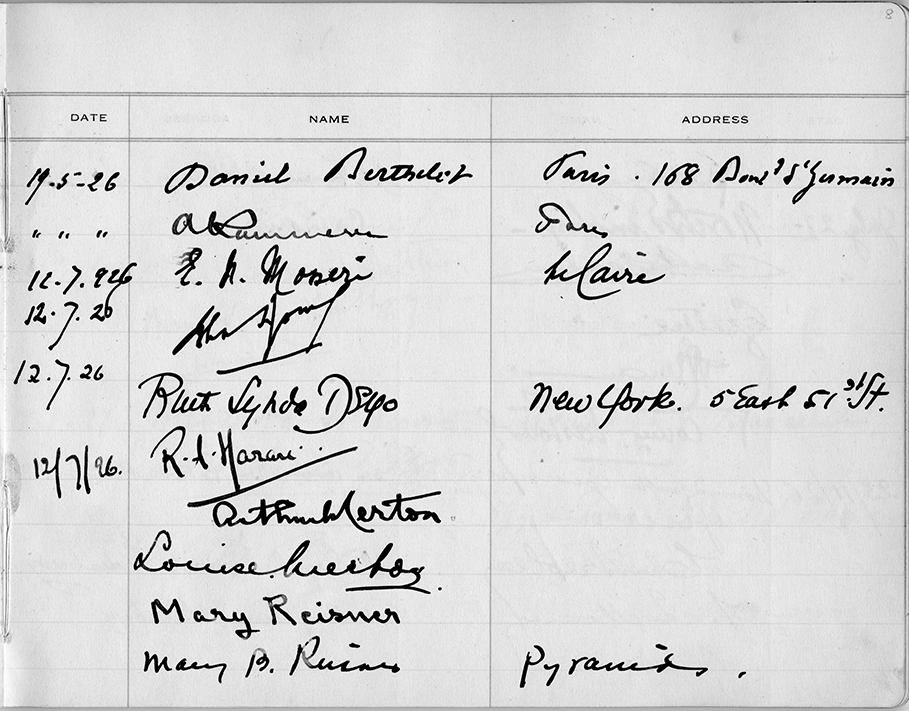 8
DATE NAME ADDRESS
19-5-26 Daniel Berthelot Paris. 168 Boul^d S^t Germain
" " " Paris
12.7.926 E. N. Mosseri le Caire
12.7.26
12.7.26
Ruth Lynda Deyo New York. 5 East 51^st St.
12/7/26. R. A. Harari
Arthur Merton
Louise
Mary Reisner
Mary B. Reisner Pyramids.